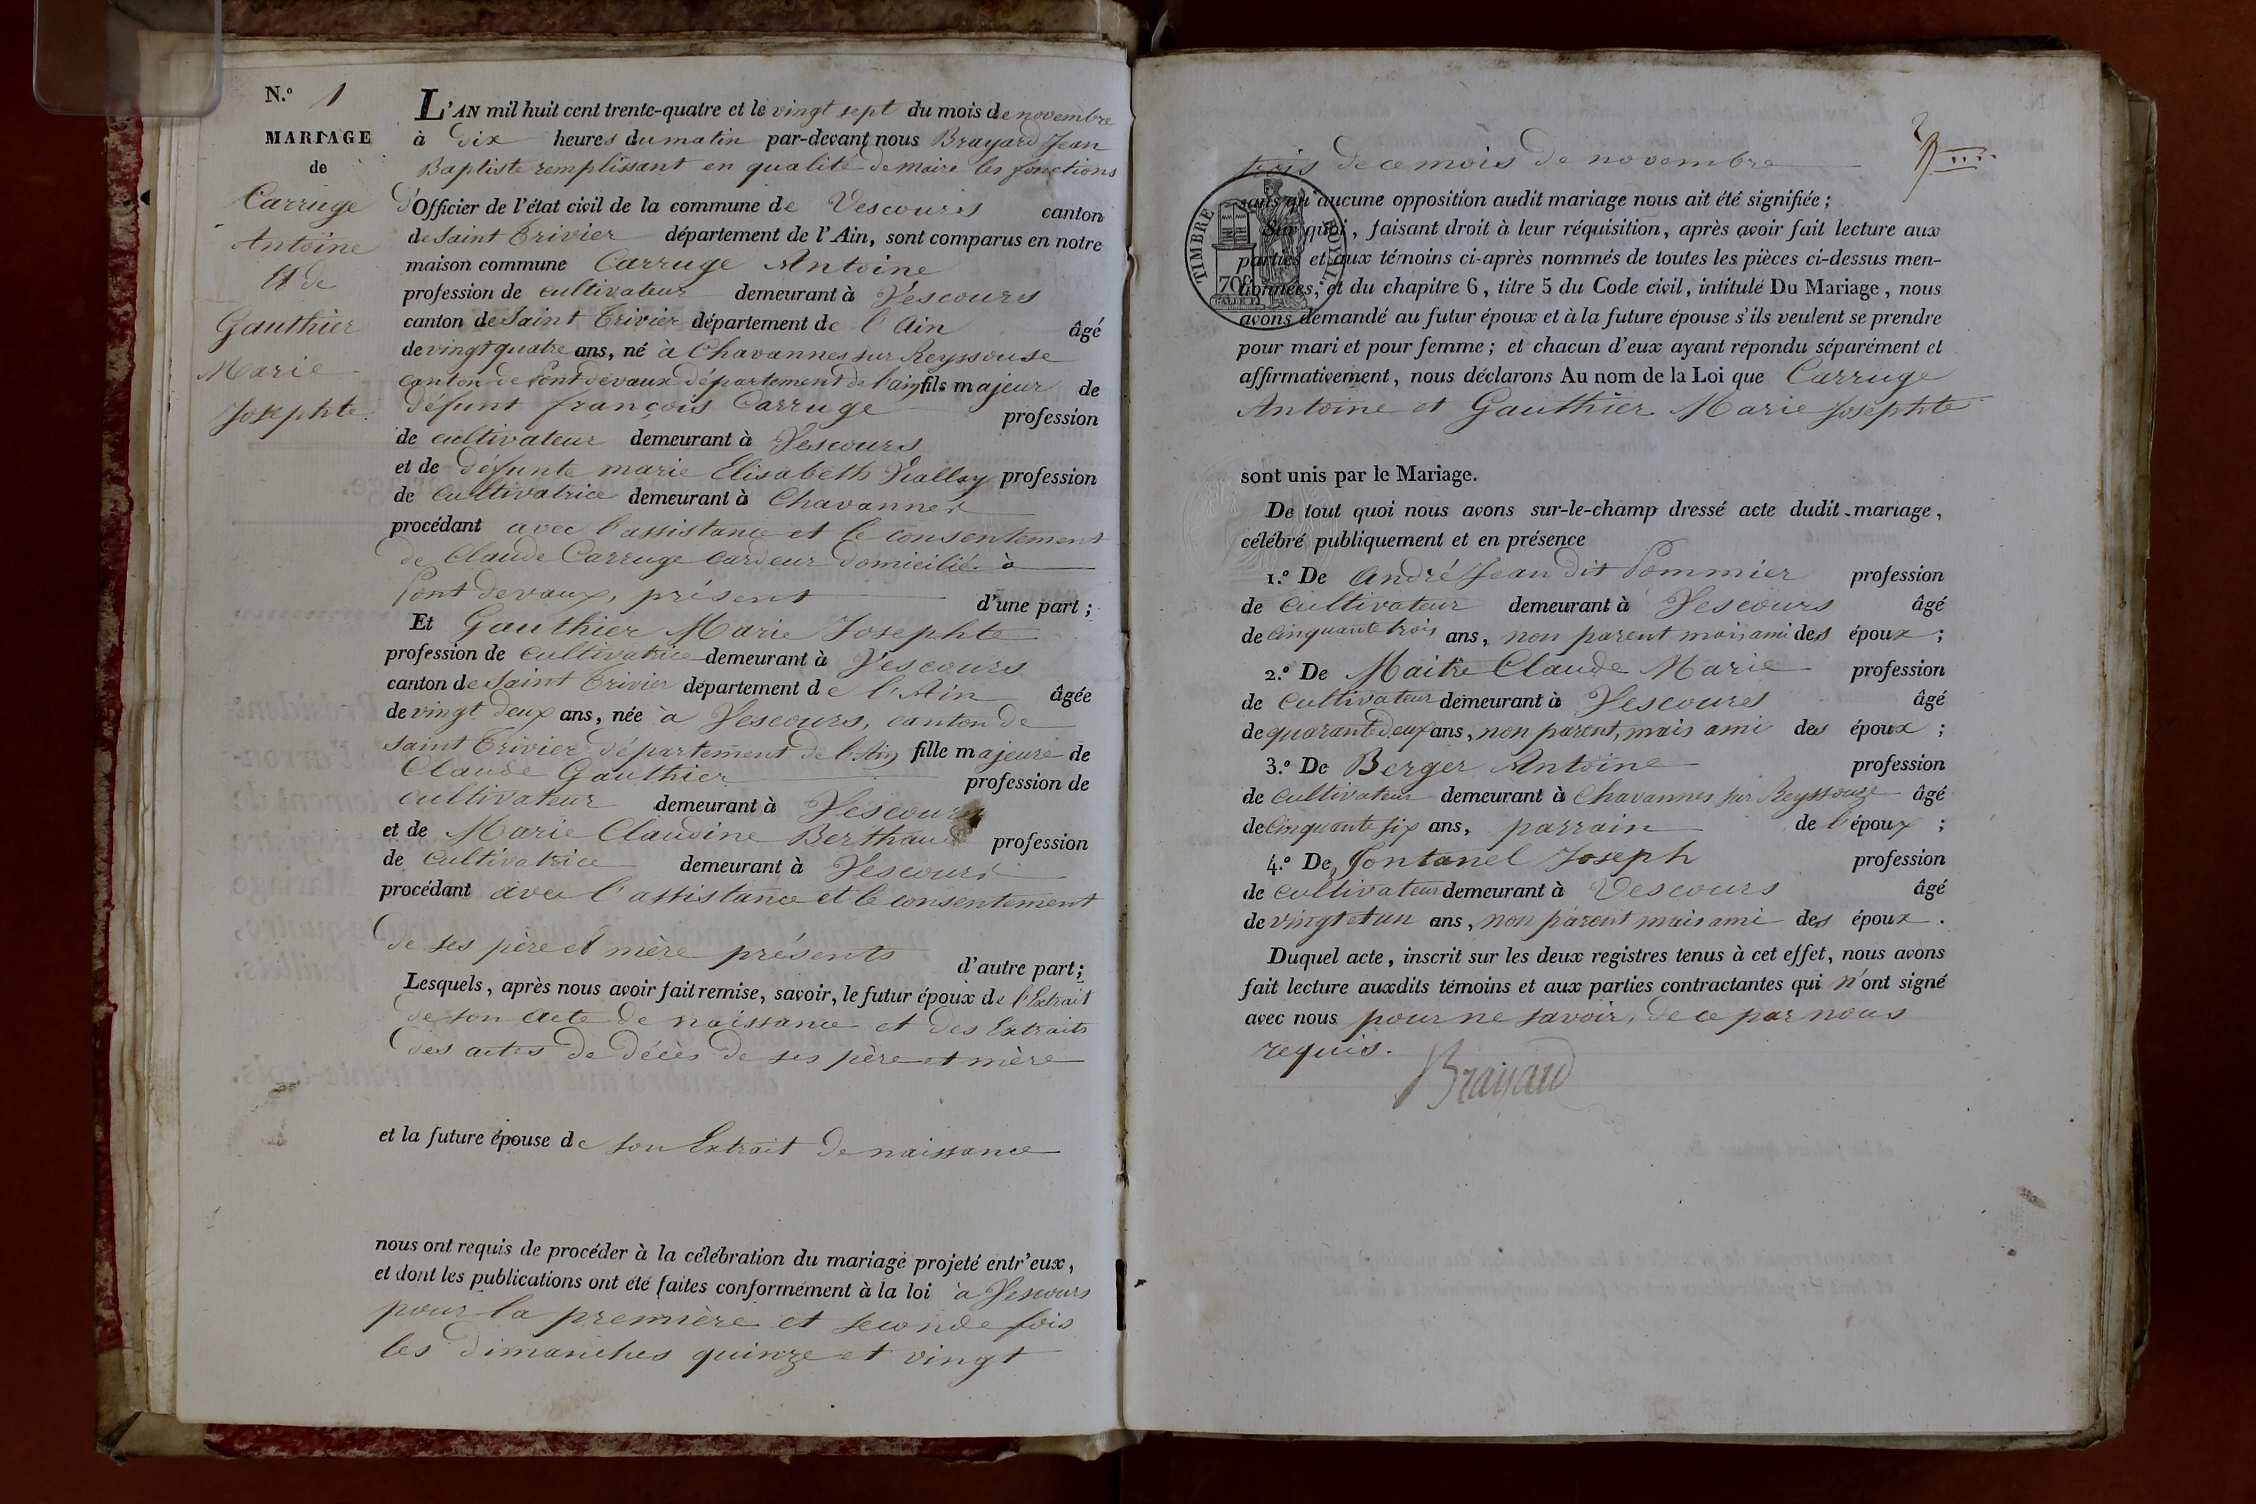 N.º 1
MARIAGE
de
Carruge
Antoine
Et de
Gauthier
Marie
Josephte.
L'AN mil huit cent trente-quatre et le vingt sept du mois de novembre
à dix heures du matin par-devant nous Brayard Jean
Baptiste remplissant en qualité de maire les fonctions
d'Officier de l'état civil de la commune de Vescours canton
de Saint Trivier département de l'Ain, sont comparus en notre
maison commune Carruge Antoine
profession de cultivateur demeurant à Vescours
canton de Saint Trivier département de l'Ain âgé
de vingt quatre ans, né à Chavannes sur Reyssouse
canton de Pont devaux département de l'ain, fils majeur de
défunt françois Carruge profession
de cultivateur demeurant à Vescours
et de défunte marie Elisabeth Viallay profession
de cultivatrice demeurant à Chavannes
procédant avec l'assistance et le consentement
de Claude Carruge cardeur domicilié à
Pont devaux, présent d'une part ;
Et Gauthier Marie Josephte
profession de cultivatrice demeurant à Vescours
canton de Saint Trivier département de l'Ain âgée
de vingt deux ans, née à Vescours, canton de
Saint Trivier département de l'Ain fille majeure de
Claude Gauthier profession de
cultivateur demeurant à Vescours
et de Marie Claudine Berthaud profession
de cultivatrice demeurant à Vescours
procédant avec l'assistance et le consentement
de ses père et mère présents d'autre part ;
Lesquels, après nous avoir fait remise, savoir, le futur époux de l'Extrait
de son acte de naissance et des Extraits
des actes de décès de ses père et mère
et la future épouse de son Extrait de naissance
nous ont requis de procéder à la célébration du mariage projeté entr'eux,
et dont les publications ont été faites conformément à la loi à Vescours
pour la première et seconde fois
les dimanches quinze et vingt
trois de ce mois de novembre
sans qu'aucune opposition audit mariage nous ait été signifiée ;
Sur quoi, faisant droit à leur réquisition, après avoir fait lecture aux
parties et aux témoins ci-après nommés de toutes les pièces ci-dessus men-
tionnées, et du chapitre 6, titre 5 du Code civil, intitulé Du Mariage, nous
avons demandé au futur époux et à la future épouse s'ils veulent se prendre
pour mari et pour femme ; et chacun d'eux ayant répondu séparément et
affirmativement, nous déclarons Au nom de la Loi que Carruge
Antoine et Gauthier Marie Josephte
sont unis par le Mariage.
De tout quoi nous avons sur-le-champ dressé acte dudit mariage,
célébré publiquement et en présence
1.º De André Jean dit Pommier profession
de cultivateur demeurant à Vescours âgé
de cinquante trois ans, non parent mais ami des époux ;
2.º De Maitre Claude Marie profession
de cultivateur demeurant à Vescours âgé
de quarante deux ans, non parent, mais ami des époux ;
3.º De Berger Antoine profession
de cultivateur demeurant à Chavannes sur Reyssouze âgé
de cinquante six ans, parrain de l'époux ;
4.º De Fontanel Joseph profession
de cultivateur demeurant à Vescours âgé
de vingt et un ans, non parent mais ami des époux.
Duquel acte, inscrit sur les deux registres tenus à cet effet, nous avons
fait lecture auxdits témoins et aux parties contractantes qui n'ont signé
avec nous pour ne savoir, de ce par nous
requis.
Brayard
TIMBRE ROYAL